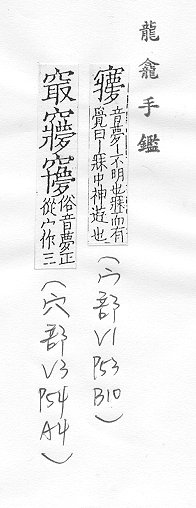 龍龕手鑑
㝱音夢不明也寐而有
覺曰丨寐中神遊也
(宀部
V1
P53
B10)
俗音夢正
從宀作三
(穴部
V3
P54
A4)